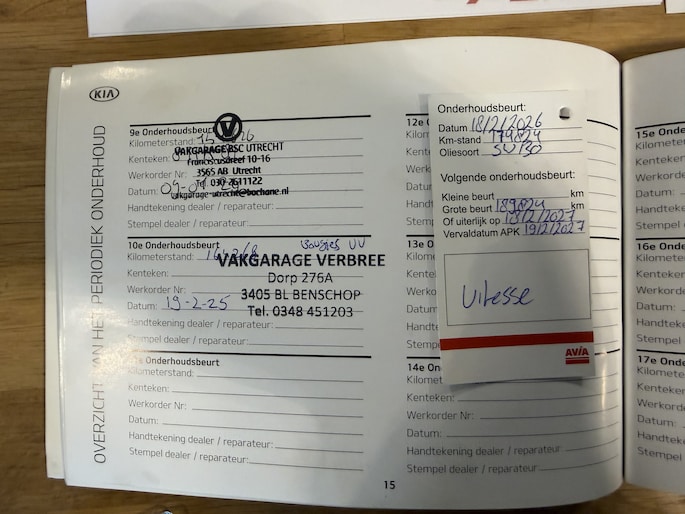 KIA
OVERZICHT VAN HET PERIODIEK ONDERHOUD
9e Onderhoudsbeurt
Kilometerstand:
Kenteken:
Werkorder Nr:
Datum:
Handtekening dealer / reparateur:
Stempel dealer / reparateur:
VAKGARAGE BSC UTRECHT
Franciscusdreef 10-16
3565 AB Utrecht
Tel. 030-2611122
10e Onderhoudsbeurt
Bougies VV
Kilometerstand:
Kenteken:
Werkorder Nr:
Datum: 19-2-25
Handtekening dealer / reparateur:
Stempel dealer / reparateur:
VAKGARAGE VERBREE
Dorp 276A
3405 BL BENSCHOP
Tel. 0348 451203
Onderhoudsbeurt
Kilometerstand:
Kenteken:
Werkorder Nr:
Datum:
Handtekening dealer / reparateur:
Stempel dealer / reparateur:
12e
13e
14e Onde
Kilomet
Kenteken:
Werkorder Nr:
Datum:
Handtekening dealer / reparateur:
Stempel dealer / reparateur:
Onderhoudsbeurt:
Datum 18/2/2026
Km-stand 174824
Oliesoort 5W30
Volgende onderhoudsbeurt:
Kleine beurt km
Grote beurt 189824 km
Of uiterlijk op 18/2/2027
Vervaldatum APK 19/2/2027
Vitesse
AVIA
15
15e Onde
Kilomete
Kenteke
Werkord
Datum:
Handte
Stempe
16e Onde
Kilomet
Kenteke
Werkor
Datum:
Handte
Stempe
17e Ond
Kilome
Kentek
Werko
Datum
Handt
Stemp